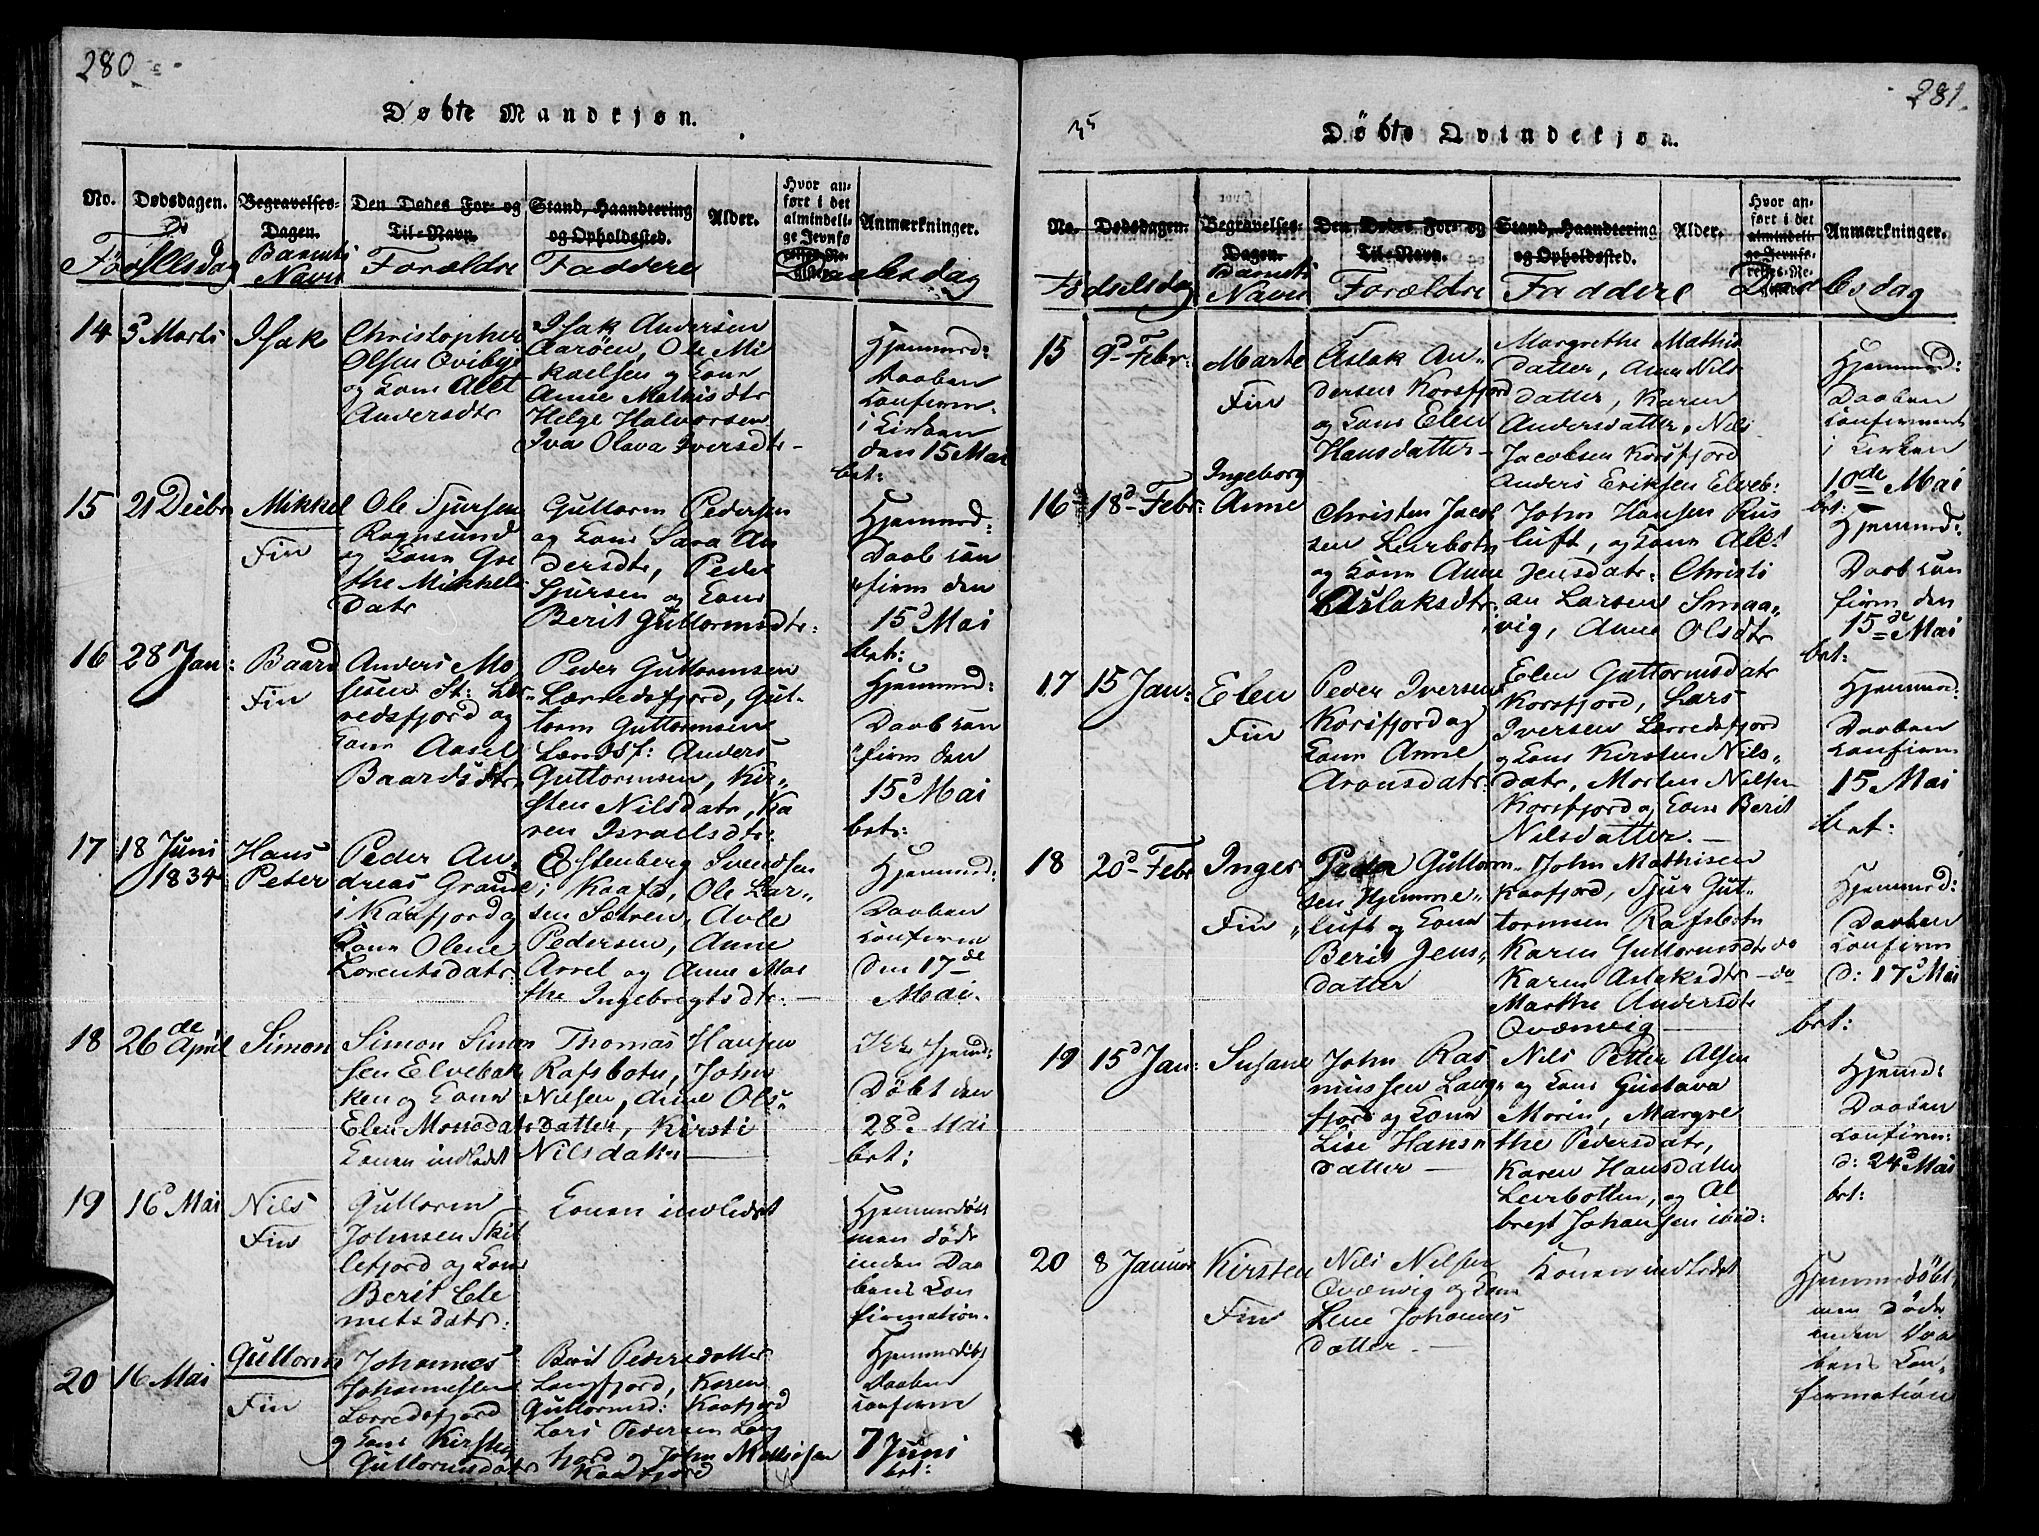 280
Døbte Mandkjøn.
No. Dødsdagen. Begravelses-Dagen. Den Dødes For- og Til-Navn. Stand, Haandtering og Opholdssted. Alder. Hvor anført i det almindelige Jevnfø Anmærkninger.
Fødselsdag Barnets Navn Forældre Faddere Daabsdag
14 5 Marts Isak
Christopher
Olsen Qviby
og Kone Alet
Andersdtr
Isak Andersen
Aarøen, Ole Mi
kaelsen og Kone
Anne Mathisdtr
Helge Halvorsen
Iva Olava Iversdtr
Hjemmed:
Daaben
confirm:
i Kirken
den 15 Mai
bet:
15 21 Decbr Mikkel
Fin
Ole Sjursen
Rognsund
og Kone Gre
the Mikkels
Datr
Guttorm Pedersen
og Kone Sara An
dersdtr, Peder
Sjursen og Kone
Berit Guttormsdtr:
Hjemmed:
Daab con
firm den
15d Mai
bet:
16 28 Jan: Baard
Fin
Anders Mo
sesen St: Ler
redsfjord og
Kone Aasel
Baardsdtr
Peder Guttormsen
Lerredsfjord, Gut-
torm Guttormsen
Anders
Guttormsen, Kir-
sten Nilsdatr, Ka
ren Israelsdtr:
Hjemmed:
Daab con
firm den
15d Mai
bet:
17 18 Juni
1834 Hans
Peter
Peder An
dreas Grande
i Kaafjord og
Kone Olene
Lorentsdatr
Estenberg Svendsen
i Kaafd, Ole Lar-
sen Sætren, Avle
Pedersen, Anne
Arrel og Anne Mar
the Ingebregtsdtr.
Hjemmed:
Daaben
confirm
den 17de
Mai.
18 26de April Simon
Simon Simon
sen Elvebak
ken og Kone
Elen Monsdatr
Konen indledet
Thomas Hansen
Rafsbotn, John
Nilsen, Anne Ols-
datter, Kirsti
Nilsdatter
Ikke hjemd:
Døbt den
28d Mai
bet:
19 16d Mai Nils
Fin
Guttorm
Johnsen Skil
lefjord og Kone
Berit Cle
metsdatr:
Konen indledet
Hjemmedøbt
men døde
inden Daa
bens Con
firmation.
20 16 Mai Guttorm
Fin
Johannes
Johannessen
Lerredsfjord
og Kone Kirsten
Guttormsdatr
Berit Pedersdatter
Langfjord, Karen
Guttormsd: Kaafjord
Lars Pedersen Lang
fjord og John Mathisen
Kaafjord
Hjemmedøbt
Daaben
confirm
7 Juni
bet:
281.
35
Døbte Qvindekjøn.
No. Dødsdagen. Begravelses-Dagen. Den Dødes For- og Til-Navn. Stand, Haandtering og Opholdssted. Alder. Hvor anført i det almindelige Jevnførelses-Re- Anmærkninger.
Fødselsdag Barnets Navn Forældre Faddere Daabsdag
15 9d Febr: Marte
Fin
Aslak An-
dersen Korsfjord
og Kone Elen
Hansdatter
Margrethe Mathis
datter, Anne Nils
datter, Karen
Andersdatter, Nils
Jacobsen Korsfjord
Anders Eriksen Elveb:
Hjemmed:
Daaben
confirmert
i Kirken
10de Mai
bet:
16 18d Febr: Ingeborg
Anne
Christen Jacob
sen Leirbotn
og Kone Anne
Aslaksdtr
John Hansen Rus
luft, og Kone Alet
Jensdatr: Christi
an Larsen Smaa-
vig, Anne Olsdtr
Hjemmed:
Daab con
firm den
15de Mai
bet:
17 15 Jan: Elen
Fin
Peder Iversen
Korsfjord og
Kone Anne
Aronsdatr:
Elen Guttormsdatr
Korsfjord, Lars
Iversen Lerredsfjord
og Kone Kirsten Nils-
datr, Morten Nilsen
Korsfjord og Kone Berit
Nilsdatter.
Hjemmed:
Daaben
confirm
15 Mai
bet:
18 20d Febr Inger
Fin
Peder Guttorm-
sen Hjemme-
luft og Kone
Berit Jens-
datter
John Mathisen
Kaafjord, Sjur Gut-
tormsen Rafsbotn
Karen Guttormsdtr do
Karen Aslaksdtr do
Marthe Andersdtr
Qvænvig
Hjemmed:
Daaben
confirm
d: 17d Mai
bet:
19 15d Jan: Susane
John Ras
mussen Lang-
fjord og Kone
Lise Hans
datter
Nils Petter Alsen
og Kone Gustava
Morin, Margre
the Pedersdatr,
Karen Hansdatter
Leirbotten, og Al
bregt Johansen ibid:
Hjemd:
Daaben
confirm:
d: 24d Mai
bet:
20 8 Januar Kirsten
Fin
Nils Nilsen
Qvænvig og Kone
Lene Johannes
datter.
Konen indledet
Hjemmedøbt,
men døde
inden Daa
bens Con-
firmation